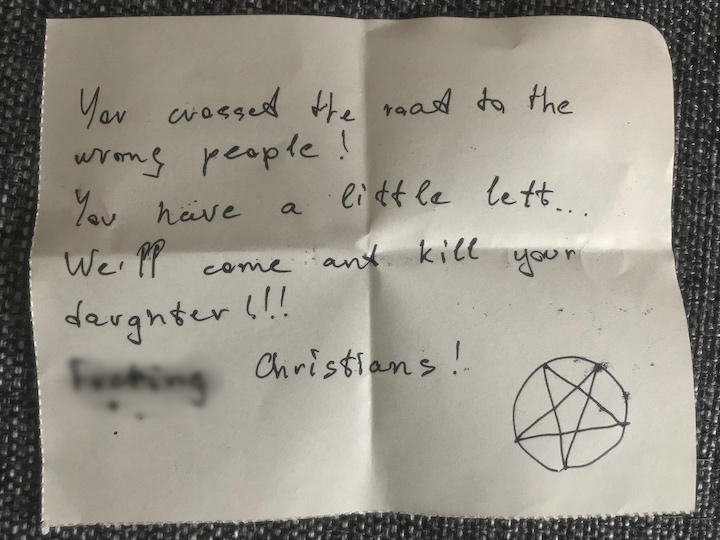 You crossed the road to the
wrong people!
You have a little left...
We'll come and kill your
daughter!!!
Christians!